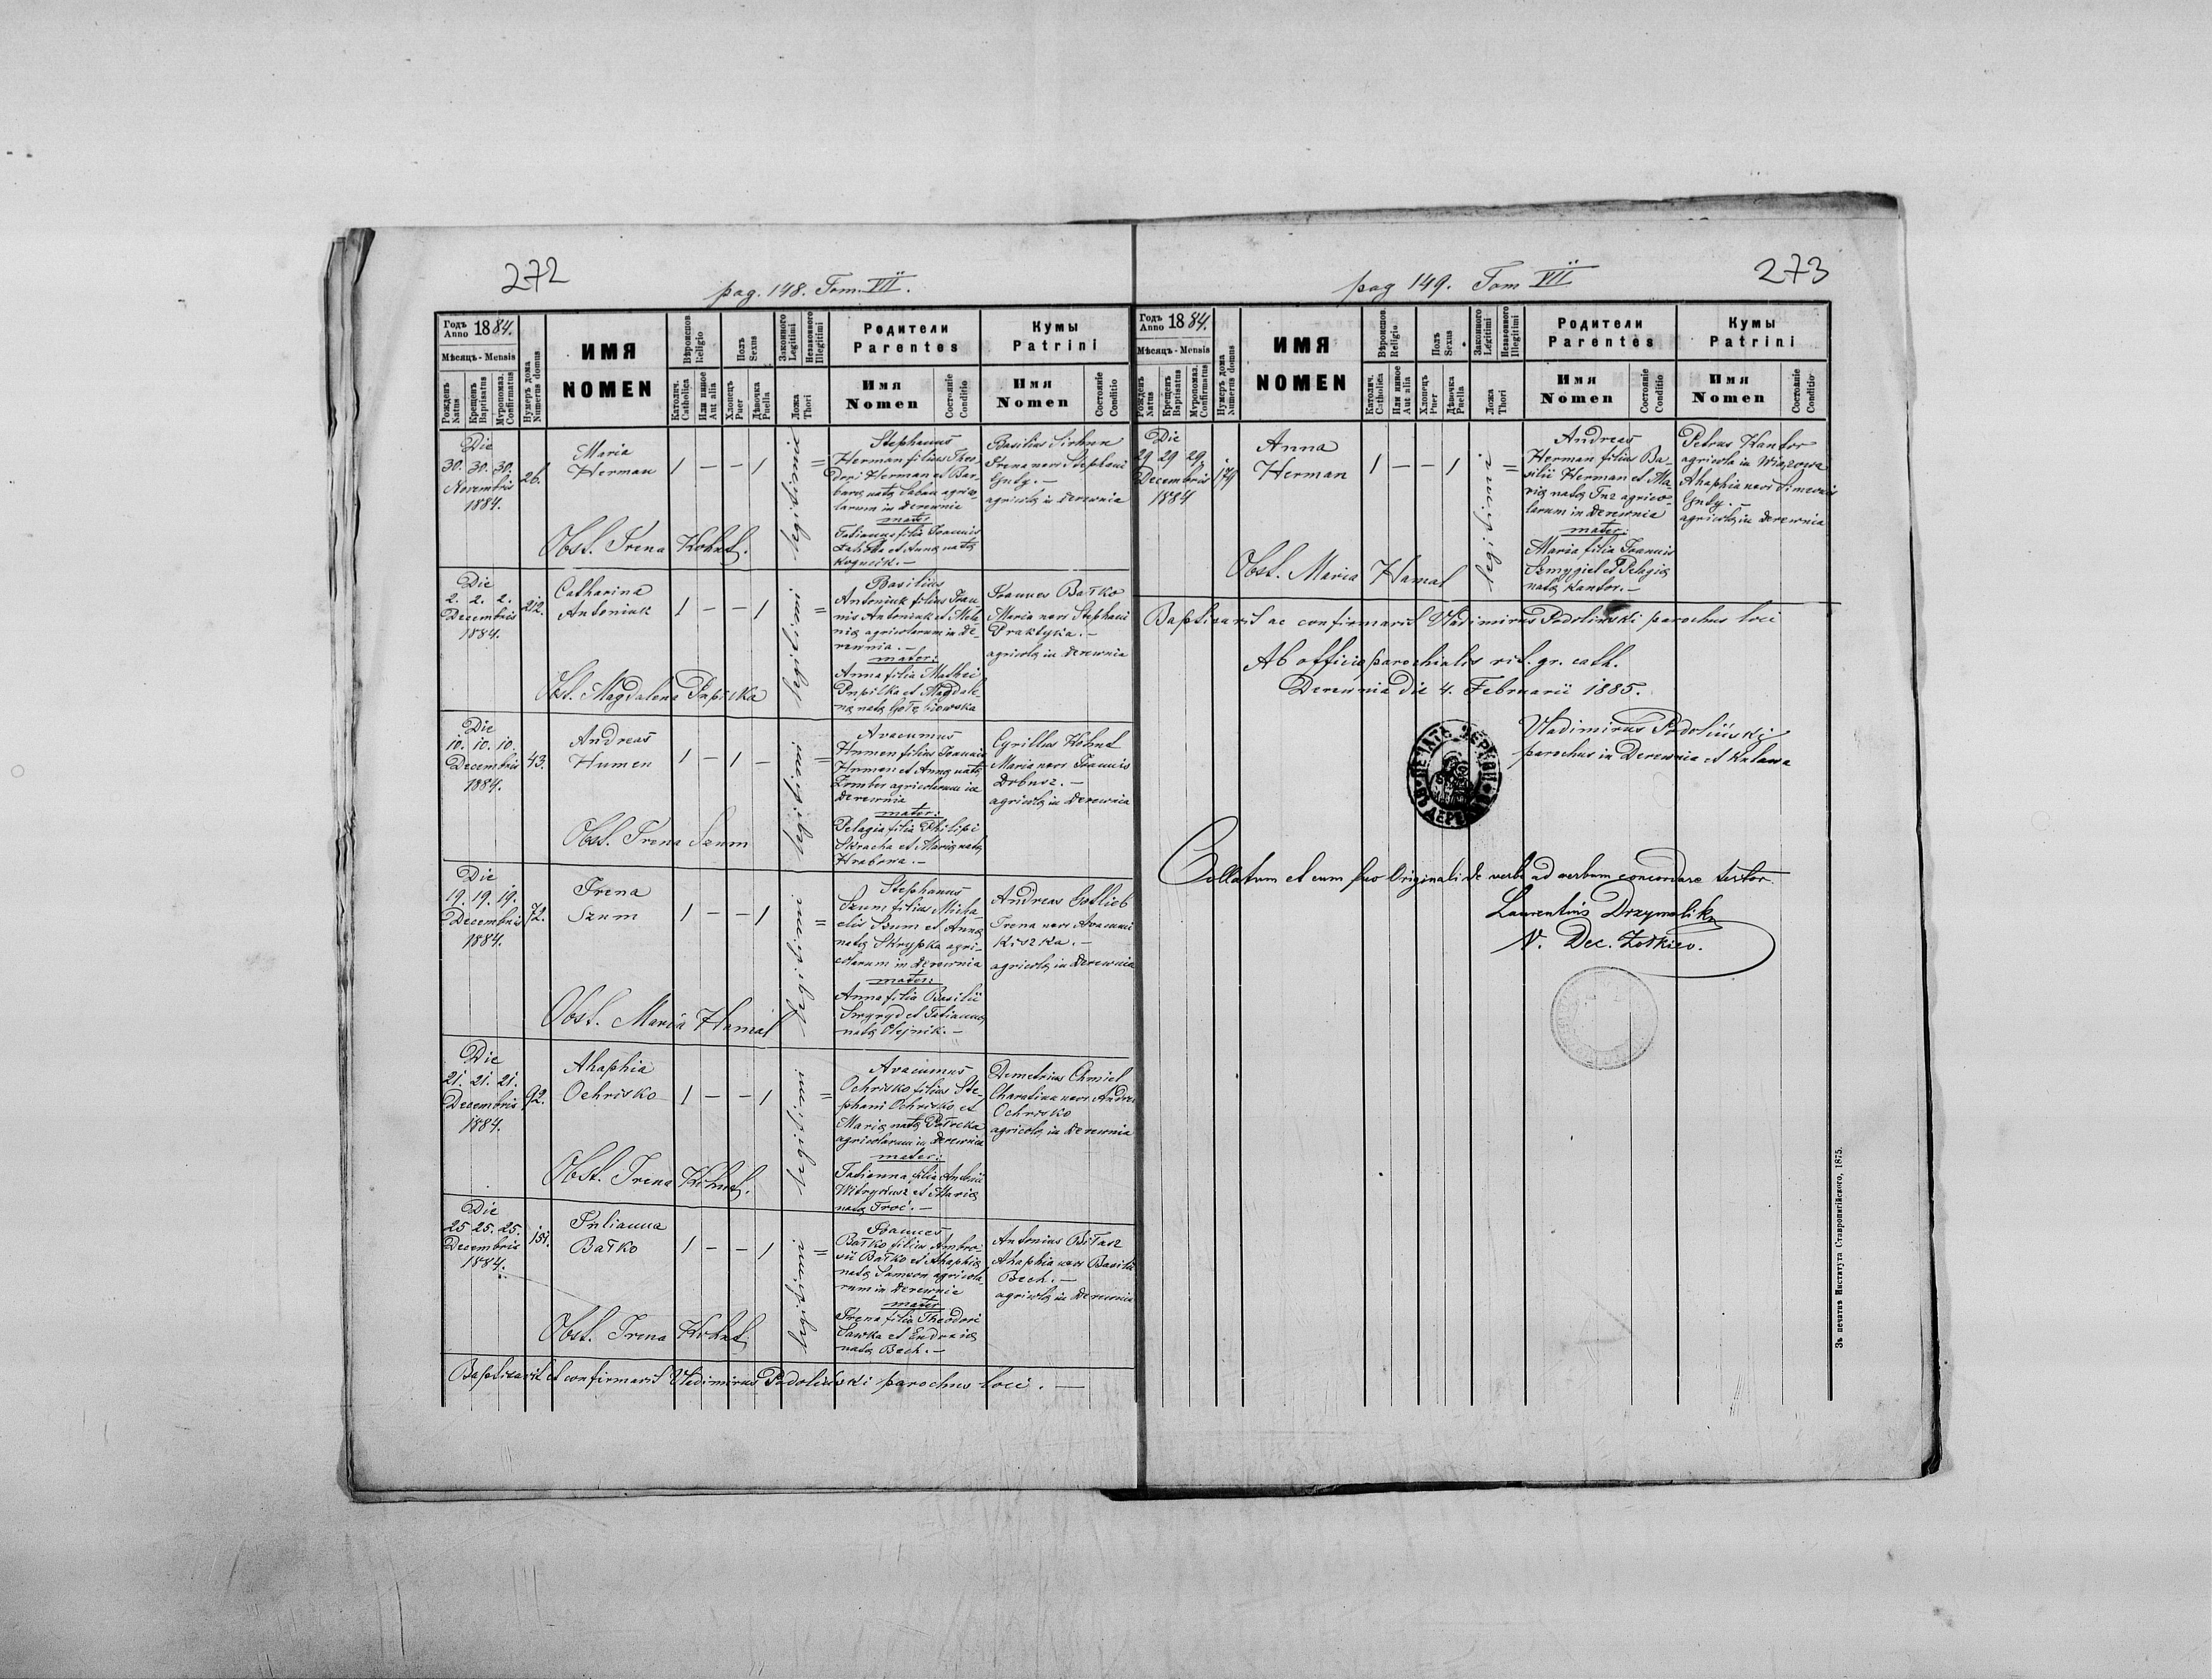 272
pag. 148. Tom. VII.
Годъ Anno 1884.
Мѣсяцъ - Mensis
Рожденъ Natus
Крещенъ Baptisatus
Мѵропомаз. Confirmatus
Нумеръ дома Numerus domus
ИМЯ
NOMEN
Вѣроиспов. Religio
Католич. Catholica
Или инное Aut alia
Полъ Sexus
Хлопецъ Puer
Дѣвочка Puella
Законного Legitimi
Незаконного Illegitimi
Ложа Thori
Родители
Parentes
Имя
Nomen
Состояніе Conditio
Кумы
Patrini
Имя
Nomen
Состояніе Conditio
Die
30. 30. 30.
Novembris
1884.
26.
Maria
Herman
1 – – 1
legitimi
=
Stephanus
Herman filius Theo-
dori Herman et Bar-
bara nata Saban agrico-
larum in Derewnia
mater
Tatianna filia Joannis
et Anna nata
Basilius
Irena uxor Stephani
Gudz. –
agricola in Derewnia
Obst. Irena Kohut.
Die
2. 2. 2.
Decembris
1884.
212.
Catharina
Antoniuk
1 – – 1
legitimi
=
Basilius
Antoniuk filius Joan-
nis Antoniuk et Mela-
nia agricolarum in De-
rewnia. –
mater:
Anna filia Mathei
Pupilka et Magdale-
na nata Gołębiowska
Joannes Bałko
Maria uxor Stephani
Praktyka. –
agricola in Derewnia
Obst. Magdalena Papiska
Die
10. 10. 10.
Decembris
1884.
43.
Andreas
Humen
1 – 1 –
legitimi
=
Avacumus
Humen filius Joannis
Humen et Anna nata
Zomber agricolarum in
Derewnia
mater:
Pelagia filia Philipi
Skracha et Maria nata
Hrabowa. –
Cyrillus Kohut
Maria uxor Joannis
Dobusz. –
agricola in Derewnia
Obst. Irena Szum
Die
19. 19. 19.
Decembris
1884.
72.
Irena
Szum
1 – – 1
legitimi
=
Stephanus
Szum filius Micha-
elis Szum et Anna
nata Skrypka agri-
colarum in Derewnia
mater:
Anna filia Basilii
Smyryd et Tatianna
nata Olejnik. –
Andreas Gotlieb
Irena uxor Avacumi
Kiszka. –
agricola in Derewnia
Obst. Maria Hamal
Die
21. 21. 21.
Decembris
1884.
92.
Ahaphia
Ochrisko
1 – – 1
legitimi
=
Avacumus
Ochrisko filius Ste-
phani Ochrisko et
Maria nata
agricolarum in Derewnia
mater:
Tatianna filia
Witrykusz et Maria
nata Troć. –
Demetrius Chmiel
Charatina uxor Andrei
Ochrisko
agricola in Derewnia
Obst. Irena Kohut.
Die
25. 25. 25.
Decembris
1884.
151.
Julianna
Bałko
1 – – 1
legitimi
=
Joannes
Bałko filius Ambro-
sii Bałko et Ahaphia
nata Samson agricola-
rum in Derewnia
mater
Irena filia Theodori
Sawka et Eudocia
nata Bech. –
Antonius Biłasz
Ahaphia uxor Basilii
Bech. –
agricola in Derewnia
Obst. Irena Kohut.
Baptisavit et confirmavit Vladimirus Podoliński parochus loci. –
273
pag 149. Tom VII
Годъ Anno 1884.
Мѣсяцъ - Mensis
Рожденъ Natus
Крещенъ Baptisatus
Мѵропомаз. Confirmatus
Нумеръ дома Numerus domus
ИМЯ
NOMEN
Вѣроиспов. Religio
Католич. Catholica
Или инное Aut alia
Полъ Sexus
Хлопецъ Puer
Дѣвочка Puella
Законного Legitimi
Незаконного Illegitimi
Ложа Thori
Родители
Parentes
Имя
Nomen
Состояніе Conditio
Кумы
Patrini
Имя
Nomen
Состояніе Conditio
Die
29 29 29.
Decembris
1884
179
Anna
Herman
1 – – 1
legitimi
=
Andreas
Herman filius Ba-
silii Herman et Ma-
ria nata Guz agrico-
larum in Derewnia
mater:
Maria filia Joannis
Czmygiel et Pelagia
nata Kantor. –
Petrus Kantor
agricola in Wiązowa
Ahaphia uxor Simeonis
Gudz. –
agricola in Derewnia
Obst. Maria Hamal
Baptisavit ac confirmavit Vladimirus Podoliński parochus loci
Ab officio parochialis rit. gr. cath.
Derewnia die 4. Februarii 1885.
Vladimirus Podoliński
parochus in Derewnia et Kulawa
Collatum et cum suo Originali de verbo ad verbum concordare testor.
Laurentius Drzymalik
V. Dec. Żołkiew.
Зъ печатнѣ Института Ставропигійского, 1875.